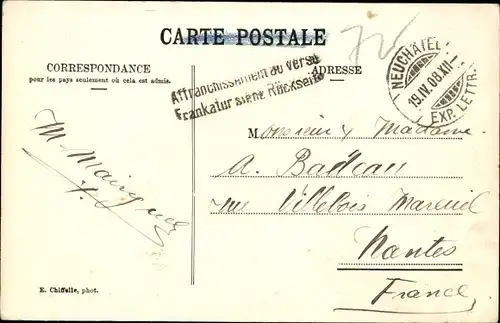 CARTE POSTALE
CORRESPONDANCE
pour les pays seulement où cela est admis.
ADRESSE
Affranchissement au verso
Frankatur siehe Rückseite
NEUCHÂTEL
19.IV.08.XII–
EXP. LETTR.
Monsieur & Madame
A.
rue Villebois Mareuil
Nantes
France
M.
E. Chiffelle, phot.